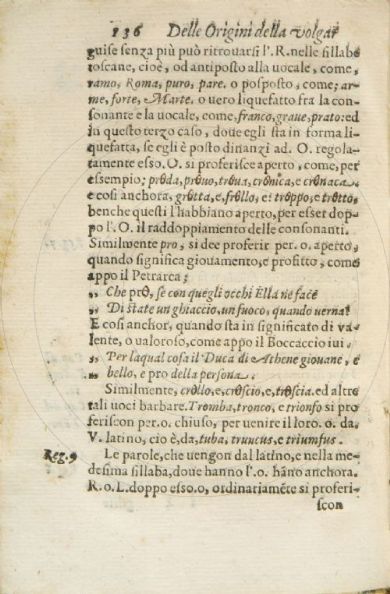 136 Delle Origini della volgar
guise senza più può ritrouarsi l'.R.nelle sillabe
toscane, cioè, od antiposto alla uocale, come,
ramo, Roma, puro, pare. o posposto, come; ar
me, forte, Marte. o uero liquefatto fra la con-
sonante e la vocale, come, franco, graue, prato: ed
in questo terzo caso, doue egli sta in forma li-
quefatta, se egli è posto dinanzi ad. O. regola-
tamente esso. O. si proferisce aperto, come, per
essempio; proda, prouo, troua, cronica, e cronaca.
e cosi anchora, grotta, e, frollo, e: troppo, e trotto,
benche questi l'habbiano aperto, per esser dop-
po l'.O. il raddoppiamento delle consonanti.
Similmente pro, si dee proferir per. o. aperto,
quando significa giouamento, e profitto, come
appo il Petrarca;
„ Che prò, se con quegli occhi Ella ne face
„ Di state un ghiaccio, un fuoco, quando uerna?
E cosi anchor, quando sta in significato di va
lente, o valoroso, come appo il Boccaccio iui.
„ Per laqual cosa il Duca di Athene giouane, e
„ bello, e pro della persona.
Similmente, crollo, e, croscio, e, troscia. ed altre
tali uoci barbare. Tromba, tronco, e trionfo si pro
feriscon per. o. chiuso, per venire il loro. o. da.
V. latino, cio è, da, tuba, truncus, e triumfus.
Reg. 9 Le parole, che uengon dal latino, e nella me
desima sillaba, doue hanno l'.o. hãno anchora.
R. o. L. doppo esso. o, ordinariamẽte si proferi-
scon